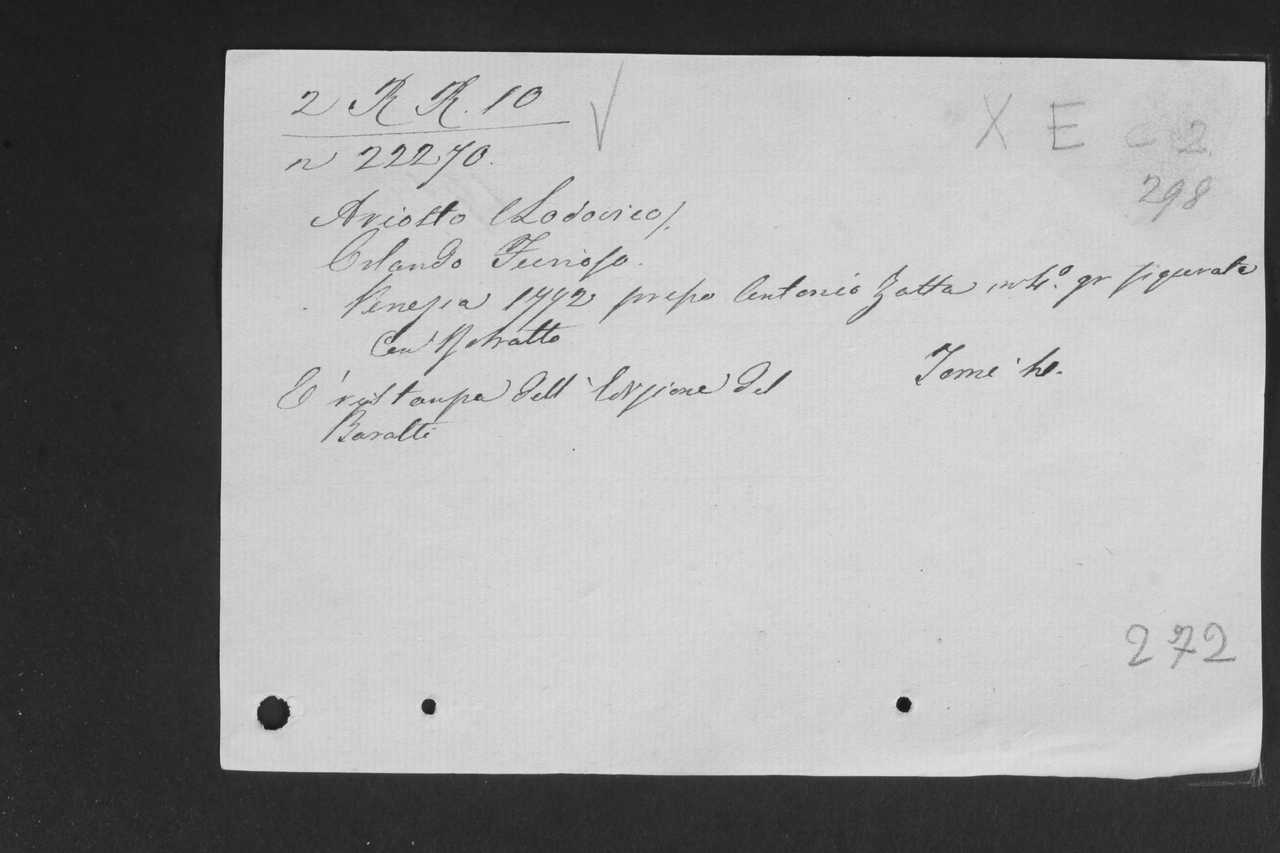 2 R R. 10
X E C 2
n 22270.
298
Ariosto (Lodovico).
Orlando Furioso.
Venezia 1772 presso Antonio Zatta in 4.º gr figurato
con Ritratto
Tomi 4.
È ristampa dell'Edizione del
Baratti
272